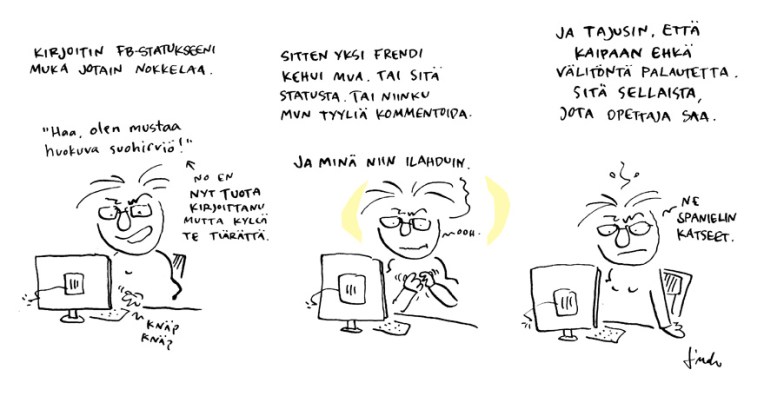 KIRJOITIN FB-STATUKSEENI
MUKA JOTAIN NOKKELAA.
"Haa, olen mustaa
huokuva suohirviö!"
NO EN
NYT TUOTA
KIRJOITTANU
MUTTA KYLLÄ
TE TIÄRÄTTÄ.
KNÄP
KNÄP
SITTEN YKSI FRENDI
KEHUI MUA. TAI SITÄ
STATUSTA. TAI NIINKU
MUN TYYLIÄ KOMMENTOIDA.
JA MINÄ NIIN ILAHDUIN.
OOH.
JA TAJUSIN, ETTÄ
KAIPAAN EHKÄ
VÄLITÖNTÄ PALAUTETTA.
SITÄ SELLAISTA,
JOTA OPETTAJA SAA.
NE
SPANIELIN
KATSEET.